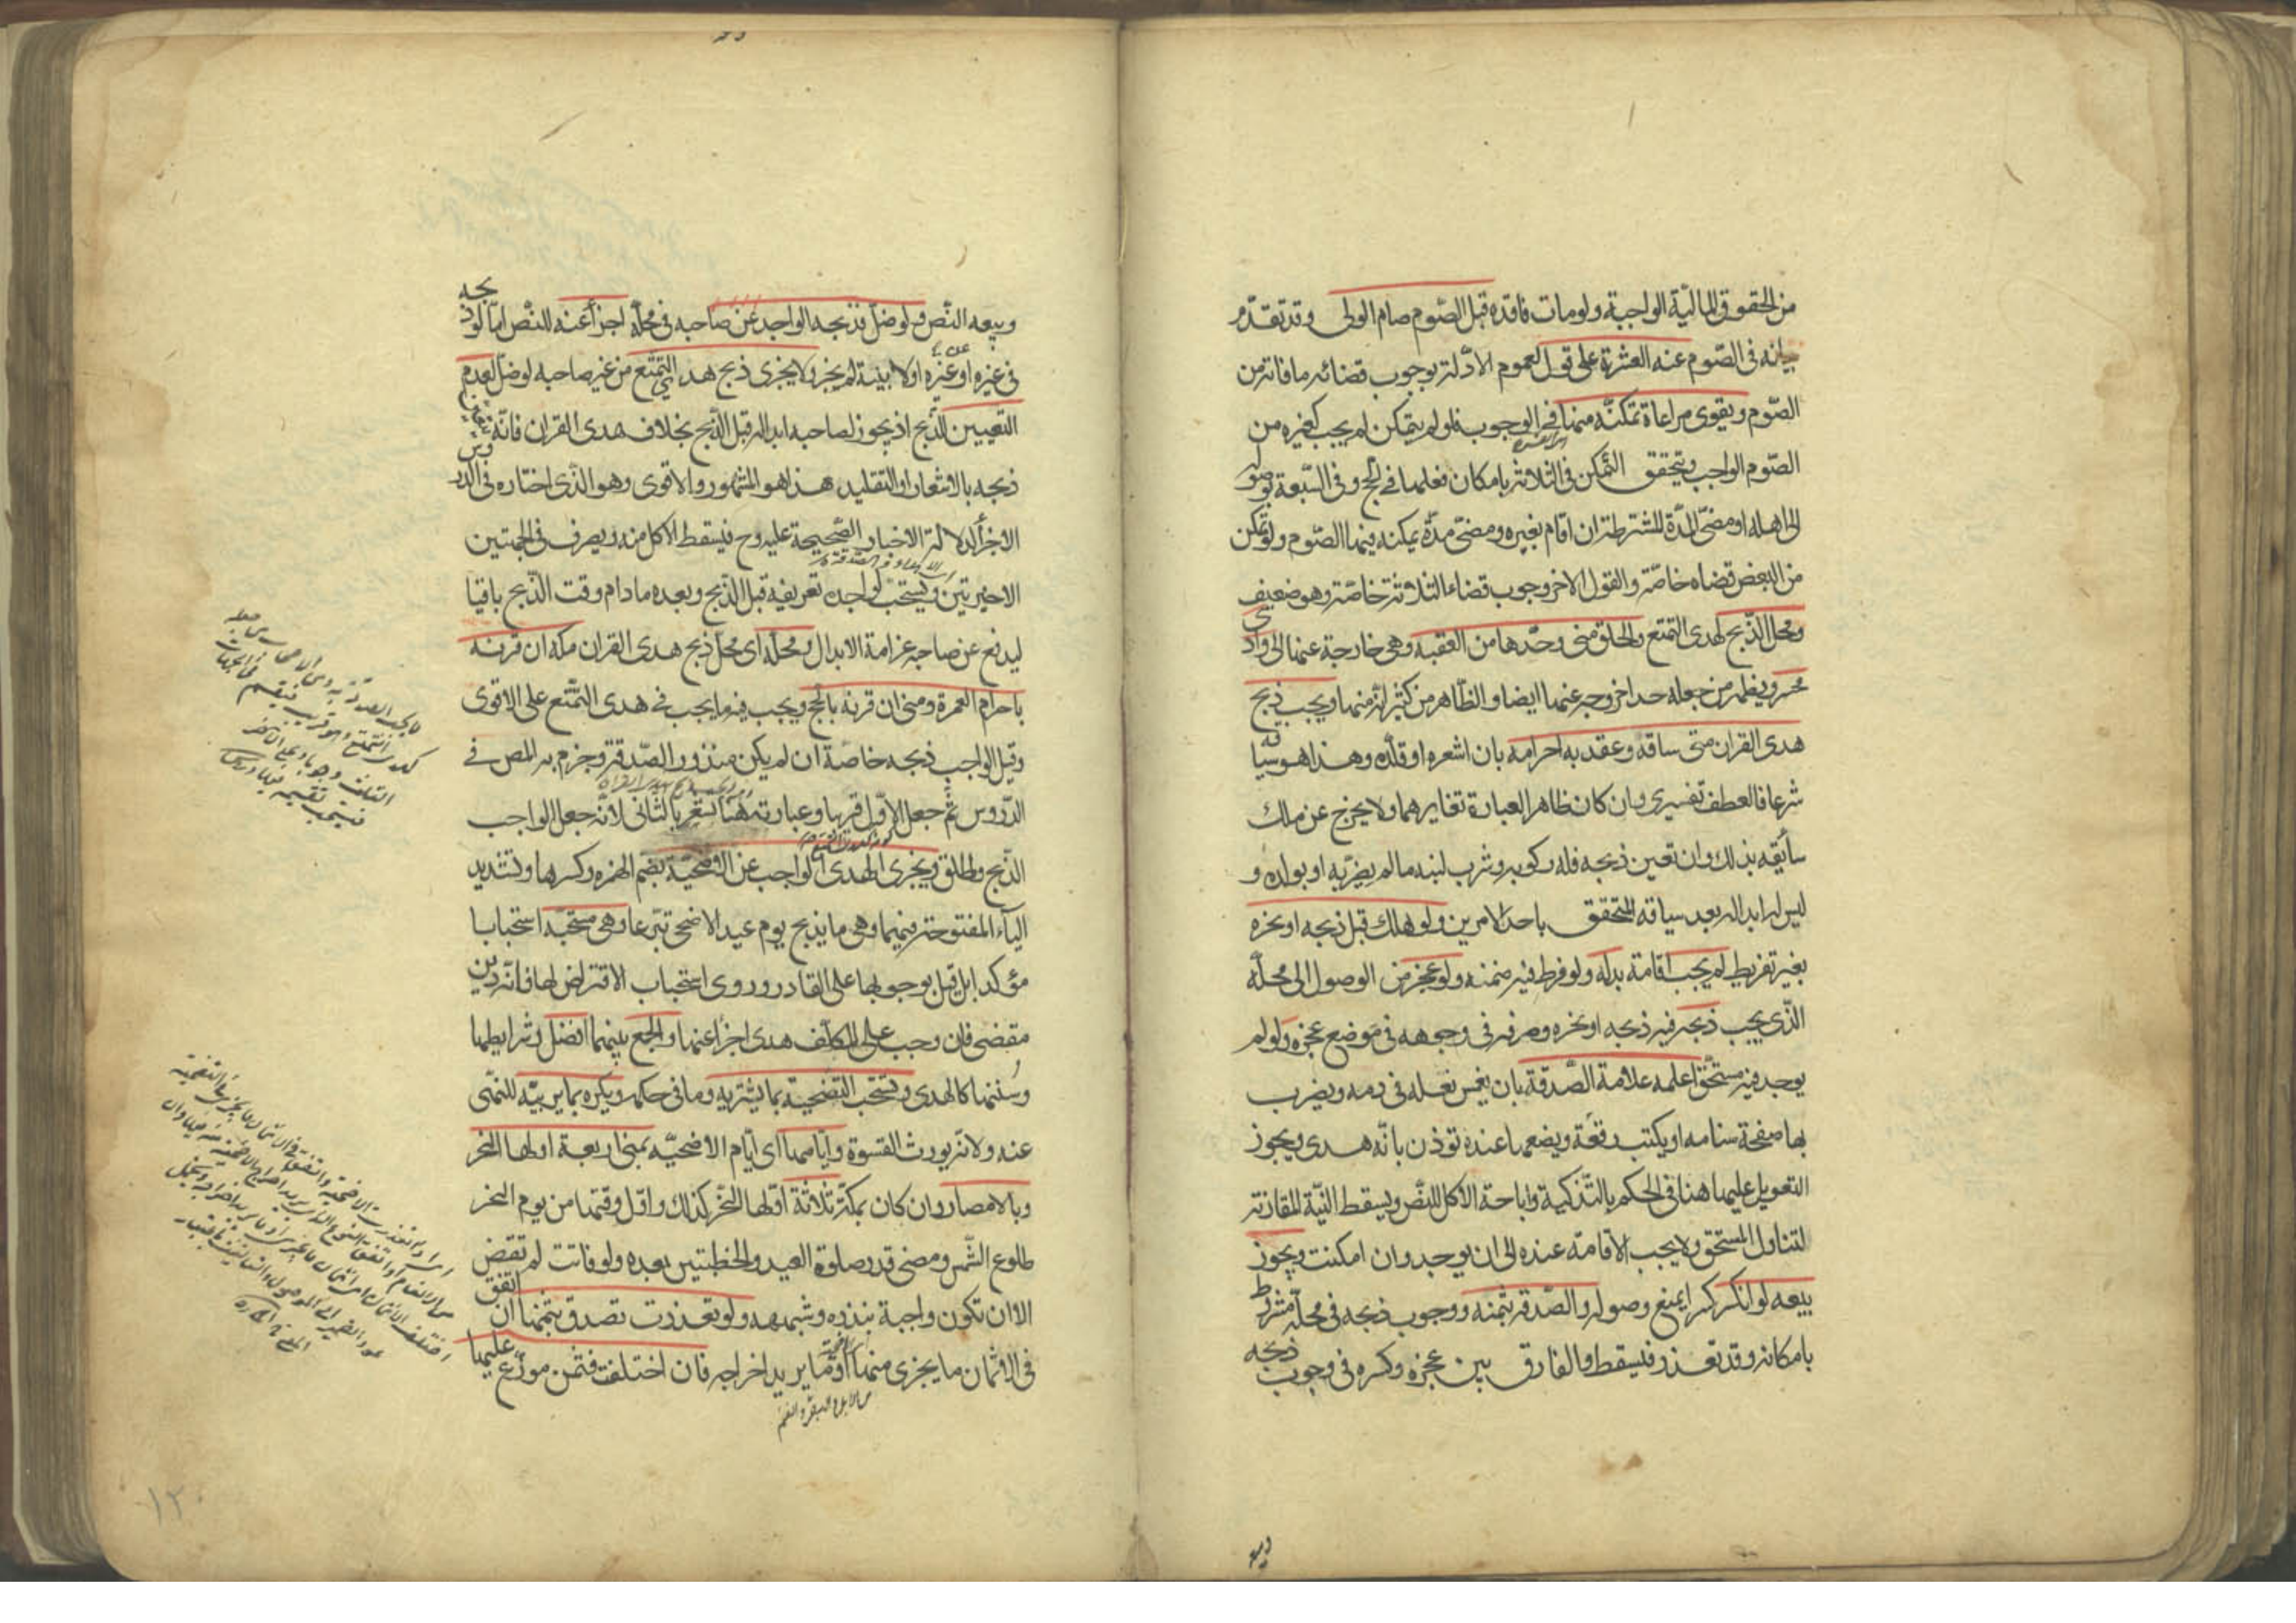 من الحقوق المالية الواجبة ولو مات فاقده قبل الصوم صام الولى وقد تقدم
بيانه فى الصوم عنه العشرة على قول لعموم الادلة بوجوب قضائه ما فاته من
الصوم ويقوى مراعاة تمكنه منها فى الوجوب فلو لم يتمكن لم يجب كغيره من
الصوم الواجب ويتحقق التمكن فى الثلاثة بامكان فعلها فى الحج وفى السبعة بوصوله
الى اهله او مضى المدة المشترطة ان اقام بغيره ومضى مدة يمكنه فيها الصوم ولو تمكن
من البعض قضاه خاصة والقول الاخر وجوب قضاء الثلاثة خاصة وهو ضعيف
ومحل الذبح لهدى التمتع والحلق منى وحدها من العقبة وهى خارجة عنها الى وادى
محسر ويظهر من جعله حدا خروجه عنها ايضا والظاهر من كثير انه منها ويجب ذبح
هدى القران متى ساقه وعقد به احرامه بان اشعره او قلده وهذا هو سياقه
شرعا فالعطف تفسيرى وان كان ظاهر العبارة تغايرهما ولا يخرج عن ملك
سائقه بذلك وان تعين ذبحه فله ركوبه وشرب لبنه ما لم يضر به او بولده و
ليس له ابداله بعد سياقه المتحقق باحد الامرين ولو هلك قبل ذبحه او نحره
بغير تفريط لم يجب اقامة بدله ولو فرط فيه ضمنه ولو عجز من الوصول الى محله
الذى يجب ذبحه فيه ذبحه او نحره وصرفه فى وجوهه فى موضع عجزه ولو لم
يوجد فيه مستحق اعلمه علامة الصدقة بان يغمس نعله فى دمه ويضرب
بها صفحة سنامه او يكتب رقعة ويضعها عنده توذن بانه هدى ويجوز
التعويل عليها هنا فى الحكم بالتذكية واباحة الاكل للنص ويسقط النية المقارنة
لتناول المستحق ولا يجب الاقامة عنده الى ان يوجد وان امكنت ويجوز
بيعه لو انكسر كسرا يمنع وصوله والصدقة بثمنه ووجوب ذبحه فى محله مشروط
بامكانه وقد تعذر فيسقط والفارق بين عجزه وكسره فى وجوب ذبحه
وبيعه النص ولو ضل فذبحه الواجد عن صاحبه فى محله اجزأ عنه للنص اما لو ذبحه
فى غيره او عن غيره او لا بنية لم يجز ولا يجزى ذبح هدى التمتع من غير صاحبه لو ضل لعدم
التعيين للذبح اذ يجوز لصاحبه ابداله قبل الذبح بخلاف هدى القران فانه يتعين
ذبحه بالاشعار او التقليد هذا هو المشهور والاقوى وهو الذى اختاره فى الدروس
الاجزأ لدلالة الاخبار الصحيحة عليه وح فيسقط الاكل منه ويصرف فى الجهتين
الاخيرتين ويستحب لواجده تعريفه قبل الذبح وبعده ما دام وقت الذبح باقيا
ليدفع عن صاحبه غرامة الابدال ومحله اى محل ذبح هدى القران مكة ان قرنه
باحرام العمرة ومنى ان قرنه بالحج ويجب فيه ما يجب فى هدى التمتع على الاقوى
وقيل الواجب ذبحه خاصة ان لم يكن منذور الصدقة وجزم به المص فى
الدروس ثم جعل الاول قريبا وعبارته هنا تشعر بالثانى لانه جعل الواجب
الذبح واطلق ويجزى الهدى الواجب عن الاضحية بضم الهمزه وكسرها وتشديد
الياء المفتوحة فيهما وهى ما يذبح يوم عيد الاضحى تبرعا وهى مستحبة استحبابا
مؤكدا بل قيل بوجوبها على القادر وروى استحباب الاقتراض لها فانه دين
مقضى فان وجب على المكلف هدى اجزأ عنها والجمع بينهما افضل وشرايطها
وسننها كالهدى ويستحب التضحية بما يشتريه وما فى حكمه ويكره بما يربيه للنهى
عنه ولانه يورث القسوة وايامها اى ايام الاضحية بمنى اربعة اولها النحر
وبالامصار وان كان بمكة ثلاثة اولها النحر كذلك واول وقتها من يوم النحر
طلوع الشمس ومضى قدر صلوة العيد والخطبتين بعده ولو فاتت لم تقض
الا ان تكون واجبة بنذره وشبهه ولو تعذرت تصدق بثمنها ان اتفق
فى الاثمان ما يجزى منها او ما يريد اخراجه فان اختلفت فثمن موزع عليها
من الابل والبقر والغنم
وبيعه
١٢٠